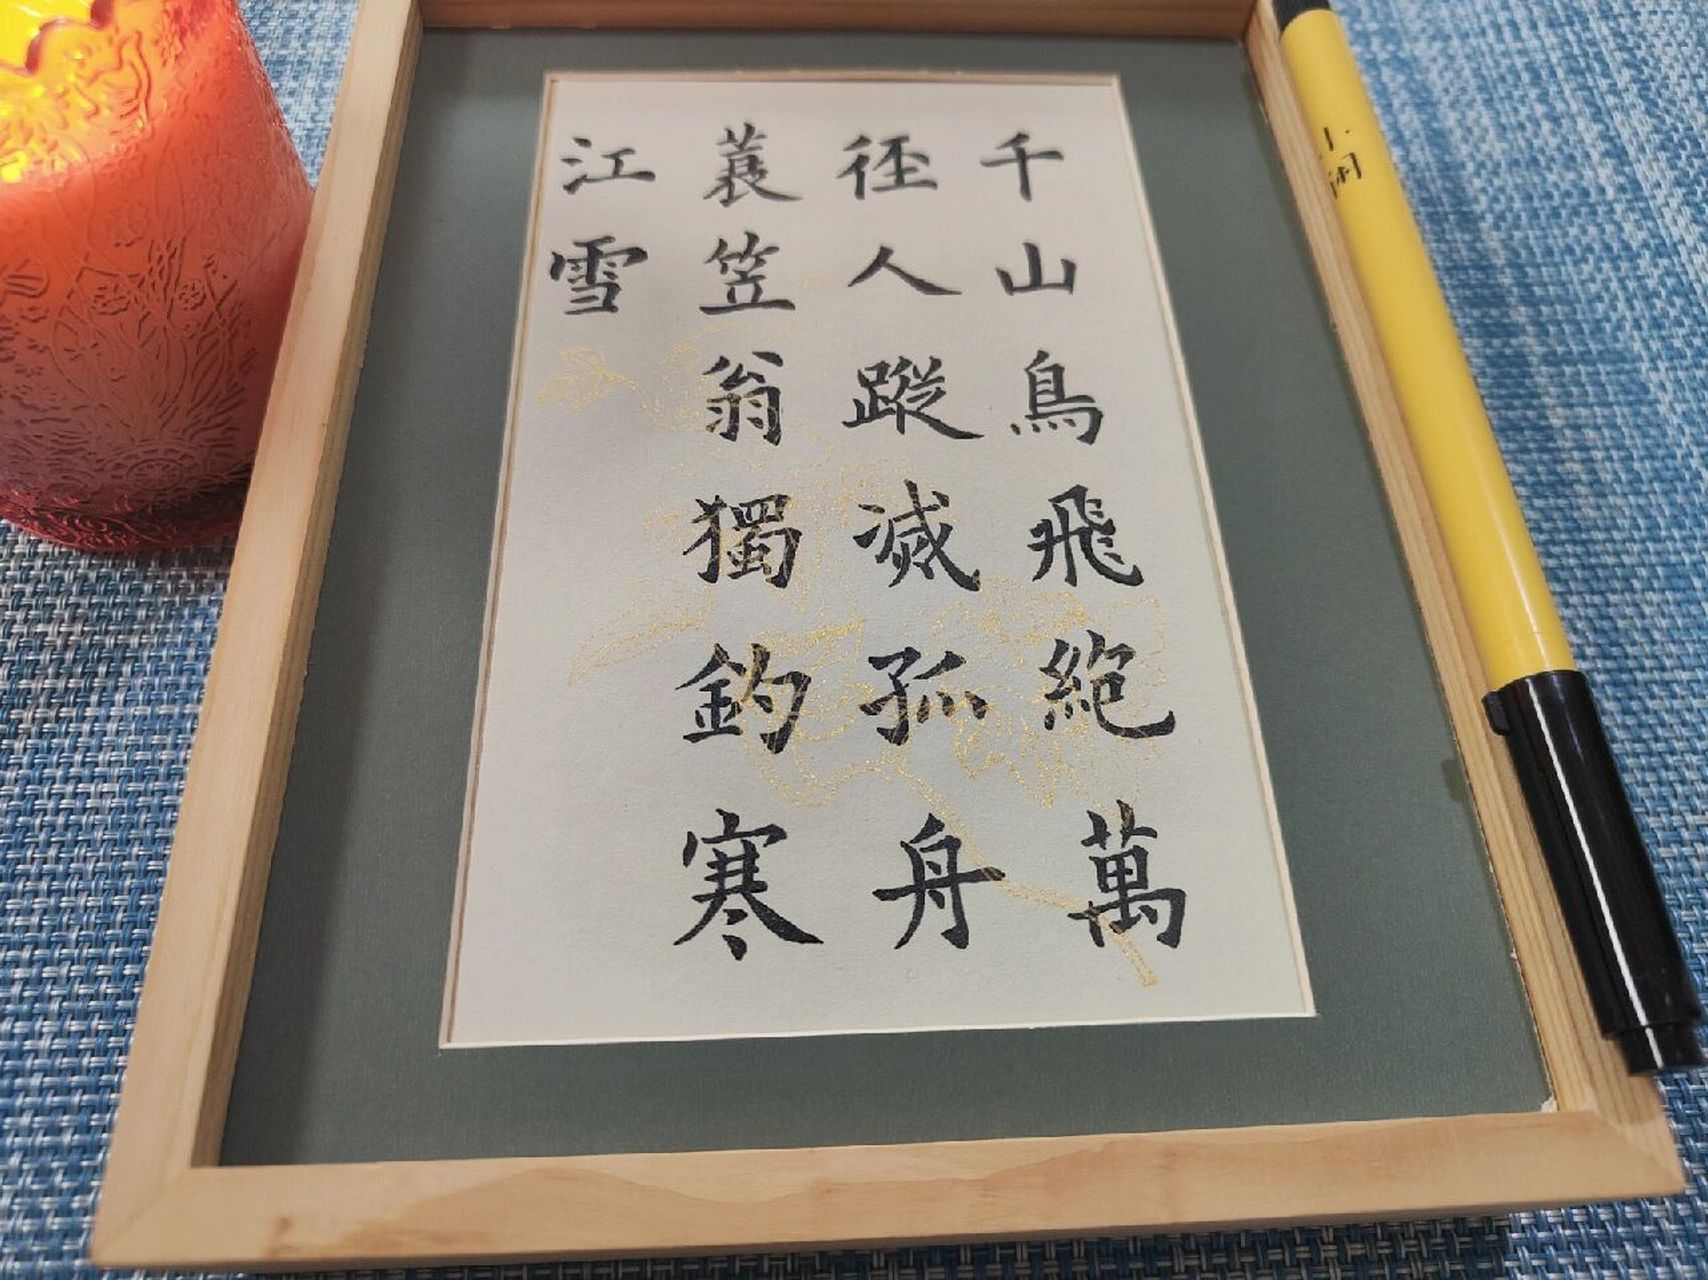 千山鳥飛絶萬
徑人蹤滅孤舟
蓑笠翁獨釣寒
江雪
小閑